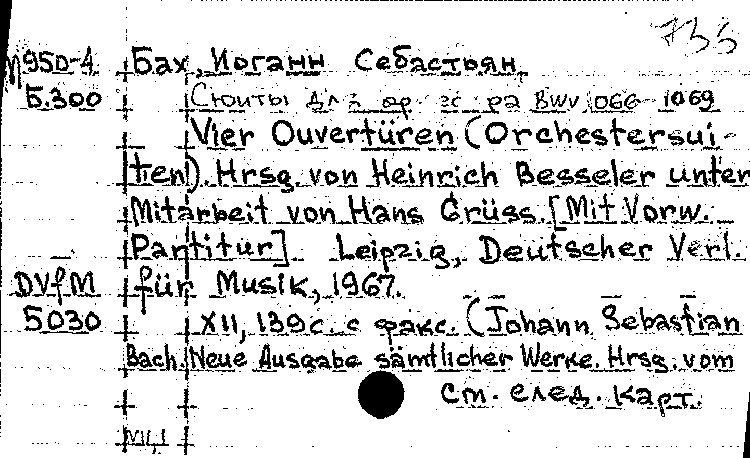 735
М950-4 Бах, Иоганн Себастьян.
Б.300 Сюиты для ор-ра BWV 1066-1069
Vier Ouvertüren (Orchestersui-
ten). Hrsg. von Heinrich Besseler unter
Mitarbeit von Hans Grüss. [Mit Vorw.
Partitur] Leipzig, Deutscher Verl.
DVfM für Musik, 1967.
5030 XII, 139 с. с факс. (Johann Sebastian
Bach. Neue Ausgabe sämtlicher Werke. Hrsg. vom
см. след. карт.